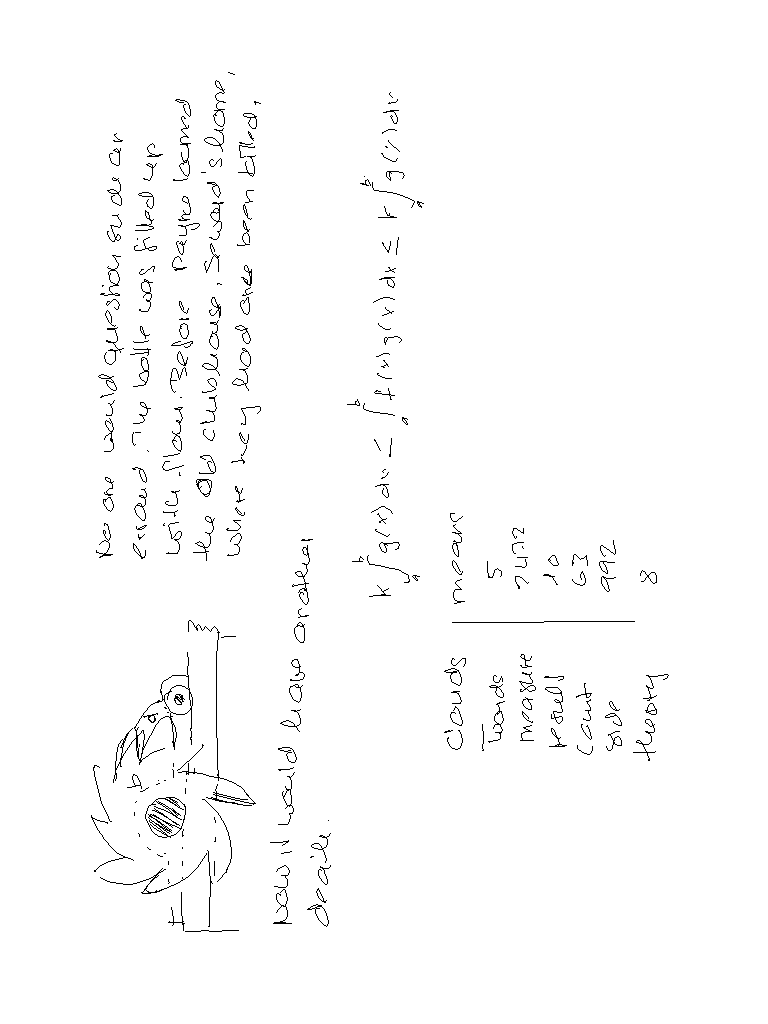 No one would question such an
errand. The bottle was filled up
with flour. Before Payne learned
the old clubhouse, Seward's home,
where they had once been billed,
b
a
Now it would have another
death.
k ∫_a^b g(x) dx ≤ ∫_a^b f(x) g(x) dx ≤ k ∫_a^b g(x) dx
clouds means
words 5
measure
result 10
count 63
side 992
theory 8